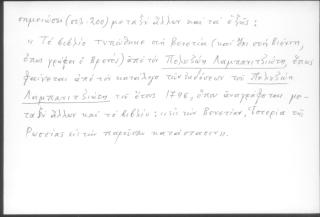 σημειώσει (σελ. 200) μεταξύ ἄλλων καί τά ἑξῆς:
«Τό βιβλίο τυπώθηκε στή Βενετία (καί ὄχι στή Βιέννη,
ὅπως γράφει ὁ Βρετός) ἀπό τόν Πολυζώη Λαμπανιτζιώτη, ὅπως
φαίνεται ἀπό τό κατάλογο τῶν ἐκδόσεων τοῦ Πολυζώη
Λαμπανιτζιώτη τοῦ ἔτους 1796, ὅπου ἀναγράφεται με-
ταξύ ἄλλων καί τό βιβλίο: εἰς τήν Βενετίαν, Ἱστορία τῆς
Ρωσσίας εἰς τήν παροῦσαν κατάστασιν».